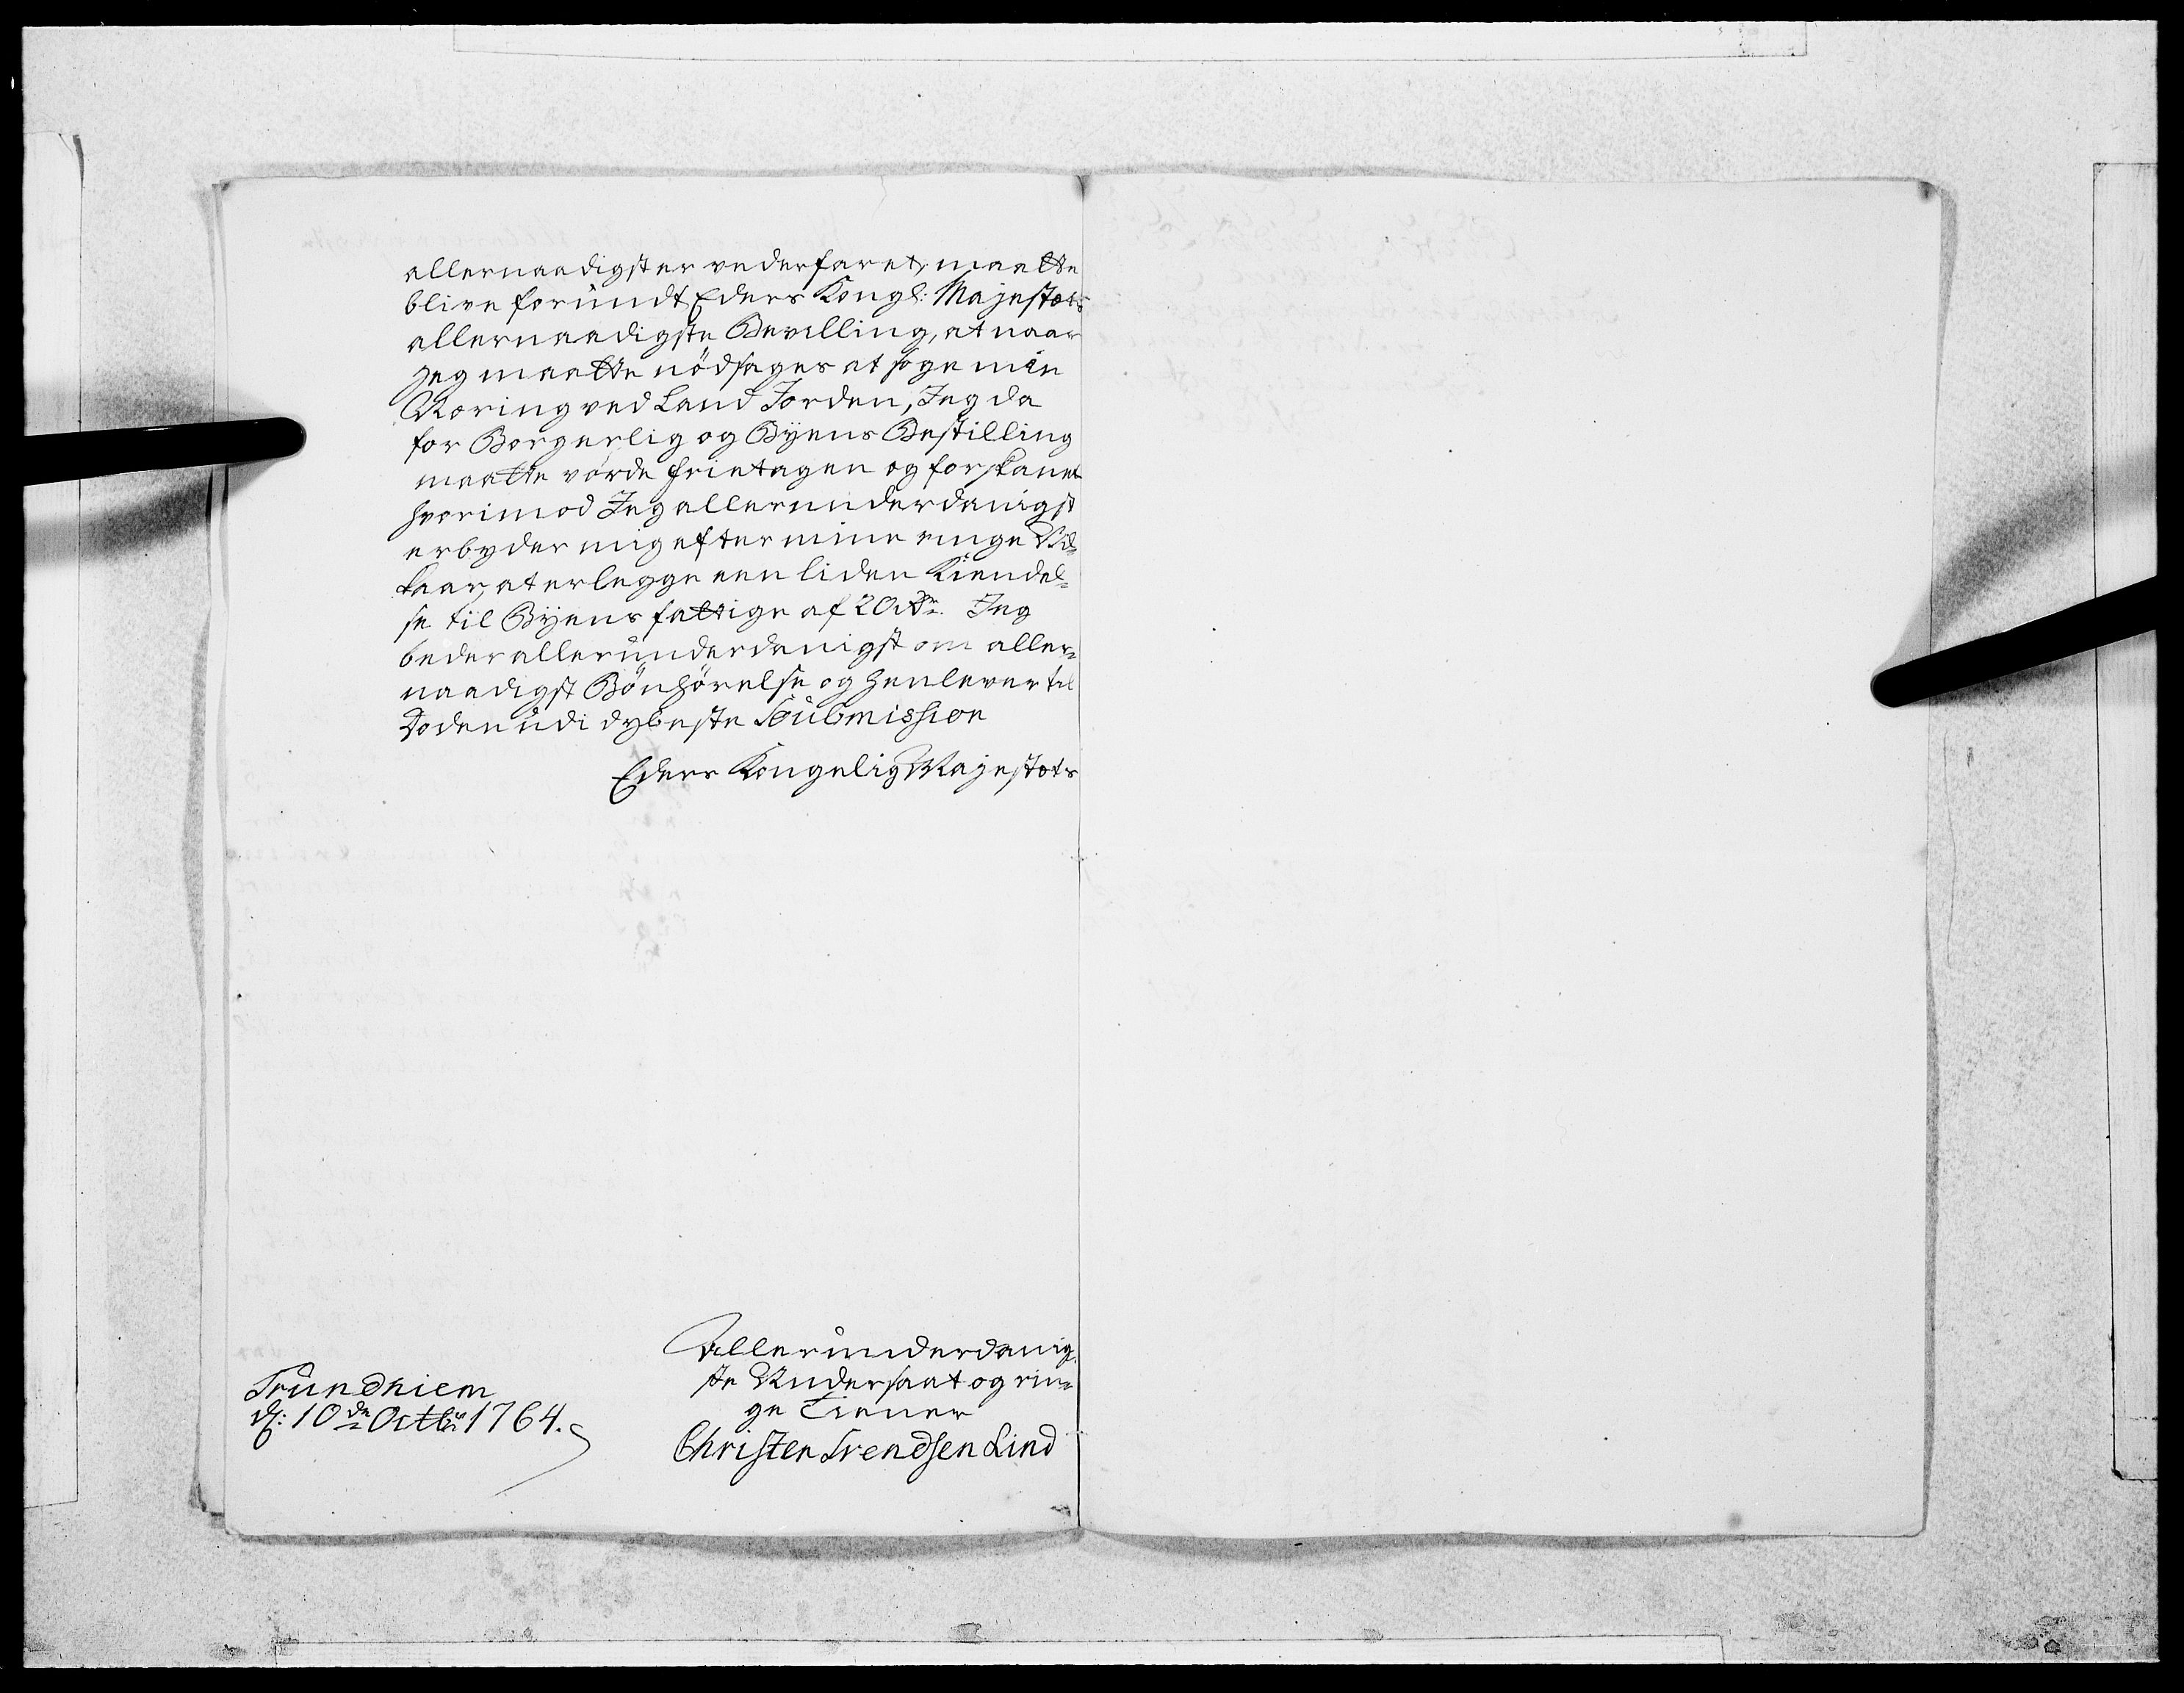 allernaadigster vederfaret, maatte
blive forundt Eders Kongl: Majestæts
allernaadigste Bevilling, at naar
Jeg maatte nödsages at søge min
Næring ved Land Jorden, Jeg da
for Borgerlig og Byens Bestilling
maatte vorde frietagen og forskaanet
hvorimod Jeg allerunderdanigst
erbyder mig efter mine ringe Vil-
kaar, at erlegge een liden Kiendel-
se til Byens fattige af 20 rdr. Jeg
beder allerunderdanigst om aller-
naadigst Bönhörelse og henlever til
Døden udi dybeste Soubmission
Eders Kongelig Majestæts
Trundhiem
d: 10de Octbr 1764.
Allerunderdanig-
ste Undersaat og rin-
ge Tiener
Christen Svendsen Lind